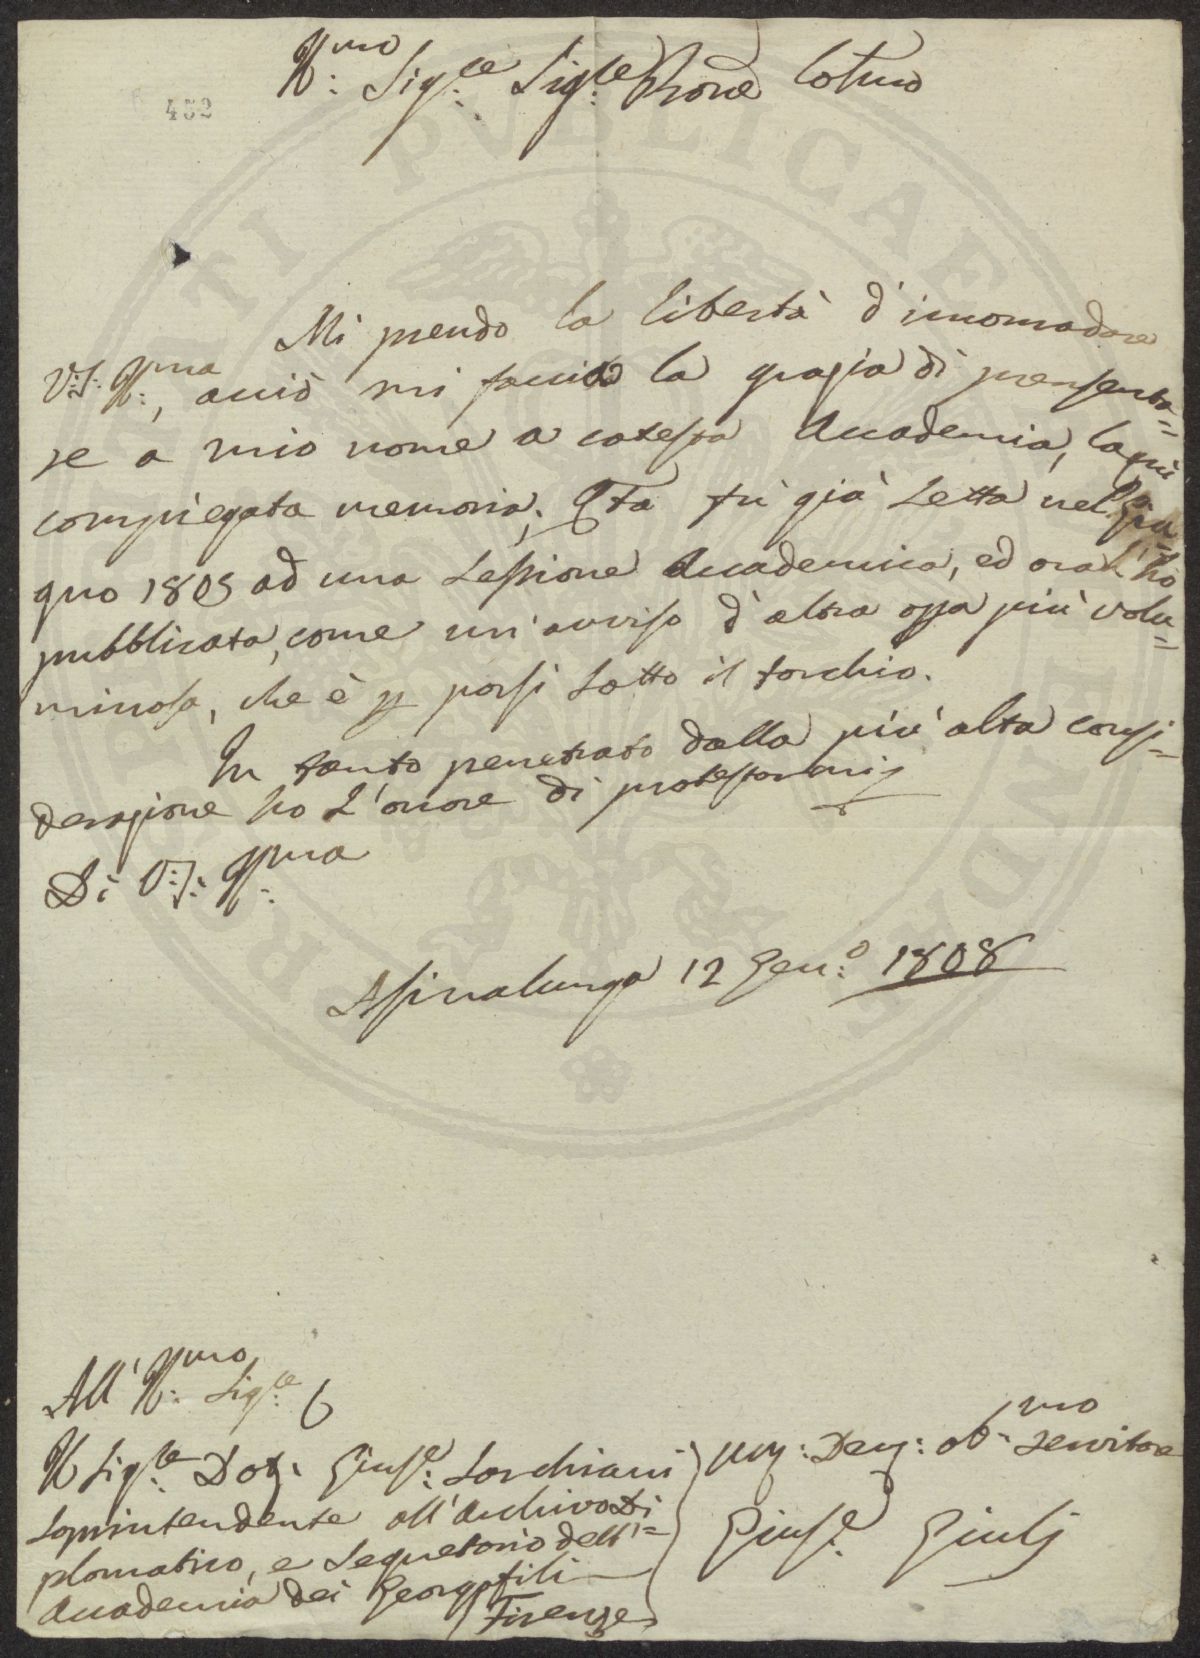 Ill:mo Sig:re Sig:re Prone Colmo
452
Mi prendo la libertà d'incomodare
V:S: Ill:ma, acciò mi faccia la grazia di presenta=
re a mio nome a cotesta Accademia, la qui
compiegata memoria; Qta fù già Letta nel Giu=
gno 1805 ad una Sessione Accademica, ed ora l'ho
pubblicata, come un'avviso d'altra opa più volu=
minosa, che è p porsi sotto il torchio.
In tanto penetrato dalla più alta consi=
derazione ho L'onore di protestarmi
Di V:S: Ill:ma
Asinalunga 12 Gen:o 1808
All'Ill:mo Sig:re
Il Sig:re Dot: Giuse: Sarchiani
Soprintendente all'Archivo Di=
plomatico, e Segretario dell'
Accademia dei Georgofili
Firenze
Um: Dev: ob:mo Servitore
Giuse: Giulj
PUBLICAE